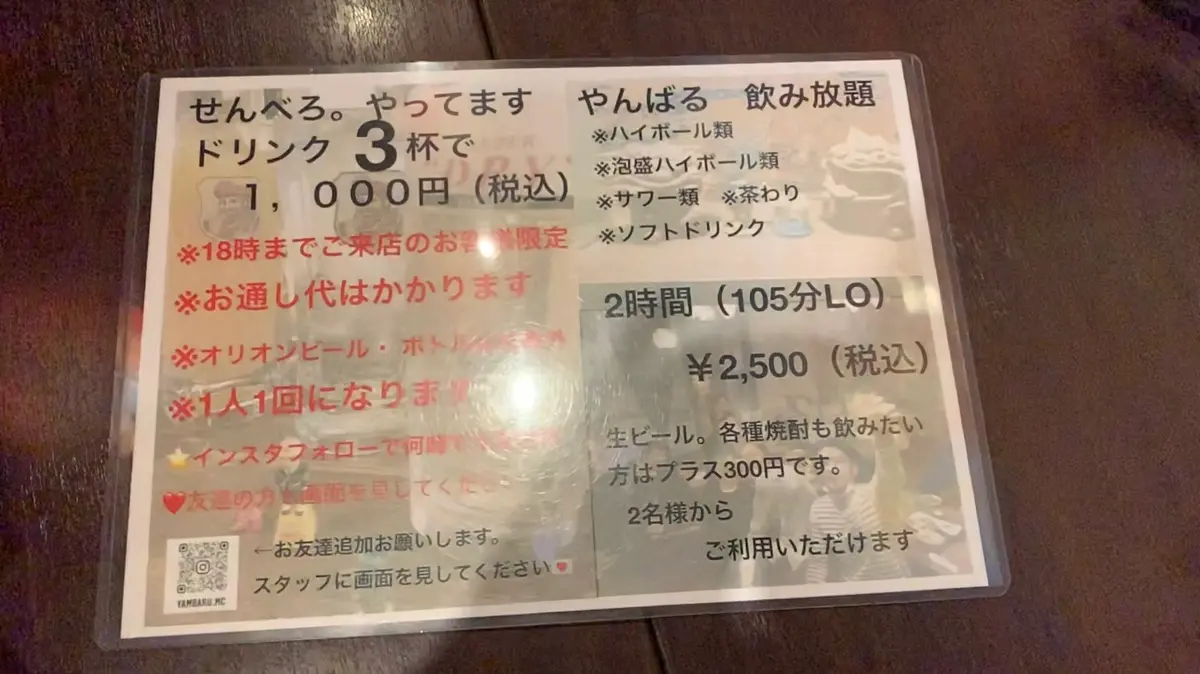 せんべろ。やってます
ドリンク 3杯で
１，０００円（税込）
※18時までご来店のお客様限定
※お通し代はかかります
※オリオンビール・ボトル
※1人1回になります
⭐インスタフォローで何時で
❤️友達の方も画面を見してくださ
←お友達追加お願いします。
スタッフに画面を見してください💌
YAMBARU.MC
やんばる　飲み放題
※ハイボール類
※泡盛ハイボール類
※サワー類　※茶わり
※ソフトドリンク
2時間（105分LO）
￥2,500（税込）
生ビール。各種焼酎も飲みたい
方はプラス300円です。
2名様から
ご利用いただけます